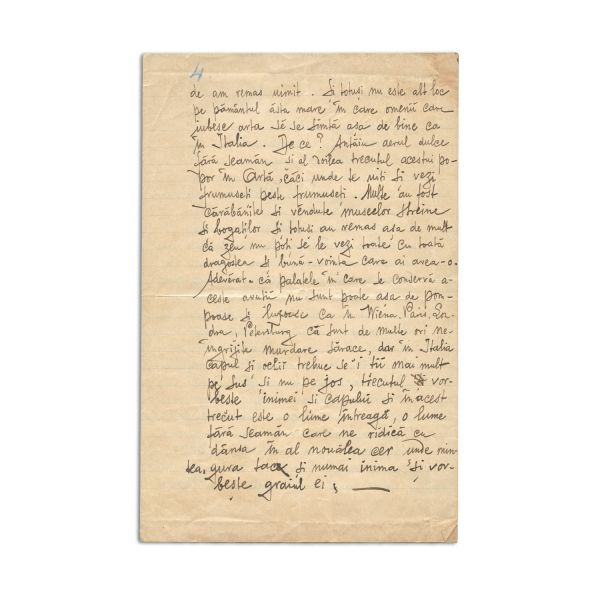 4
de am remas uimit. Și totuși nu este alt loc
pe pământul ăsta mare în care omenii care
iubesc arta să se simtă așa de bine ca
în Italia. De ce? Antăiu aerul dulce
fără seamăn și al doilea trecutul acestui po-
por în Artă, căci unde te uiți și vezi
frumuseți peste frumuseți. Multe au fost
cărăbănite și vendute museelor streine
și bogaților și totuși au remas așa de mult
că zeu nu poți se le vezi toate cu toată
dragostea și bună-voința care ai avea-o.
Adeverat că palatele în care se conservă a-
ceste avuții nu sunt poate așa de pom-
poase și luxoase ca în Wiena, Paris, Lon-
dra, Petersburg că sunt de multe ori ne-
îngrijite murdare sărace, dar în Italia
capul și ochii trebue se'i ții mai mult
pe sus și nu pe jos, trecutul vor-
bește inimei și capului și în acest
trecut este o lume întreagă, o lume
fără seamăn care ne ridică cu
dânsa în al nouălea cer unde min-
tea, gura tac și numai inima își vor-
bește graiul ei,